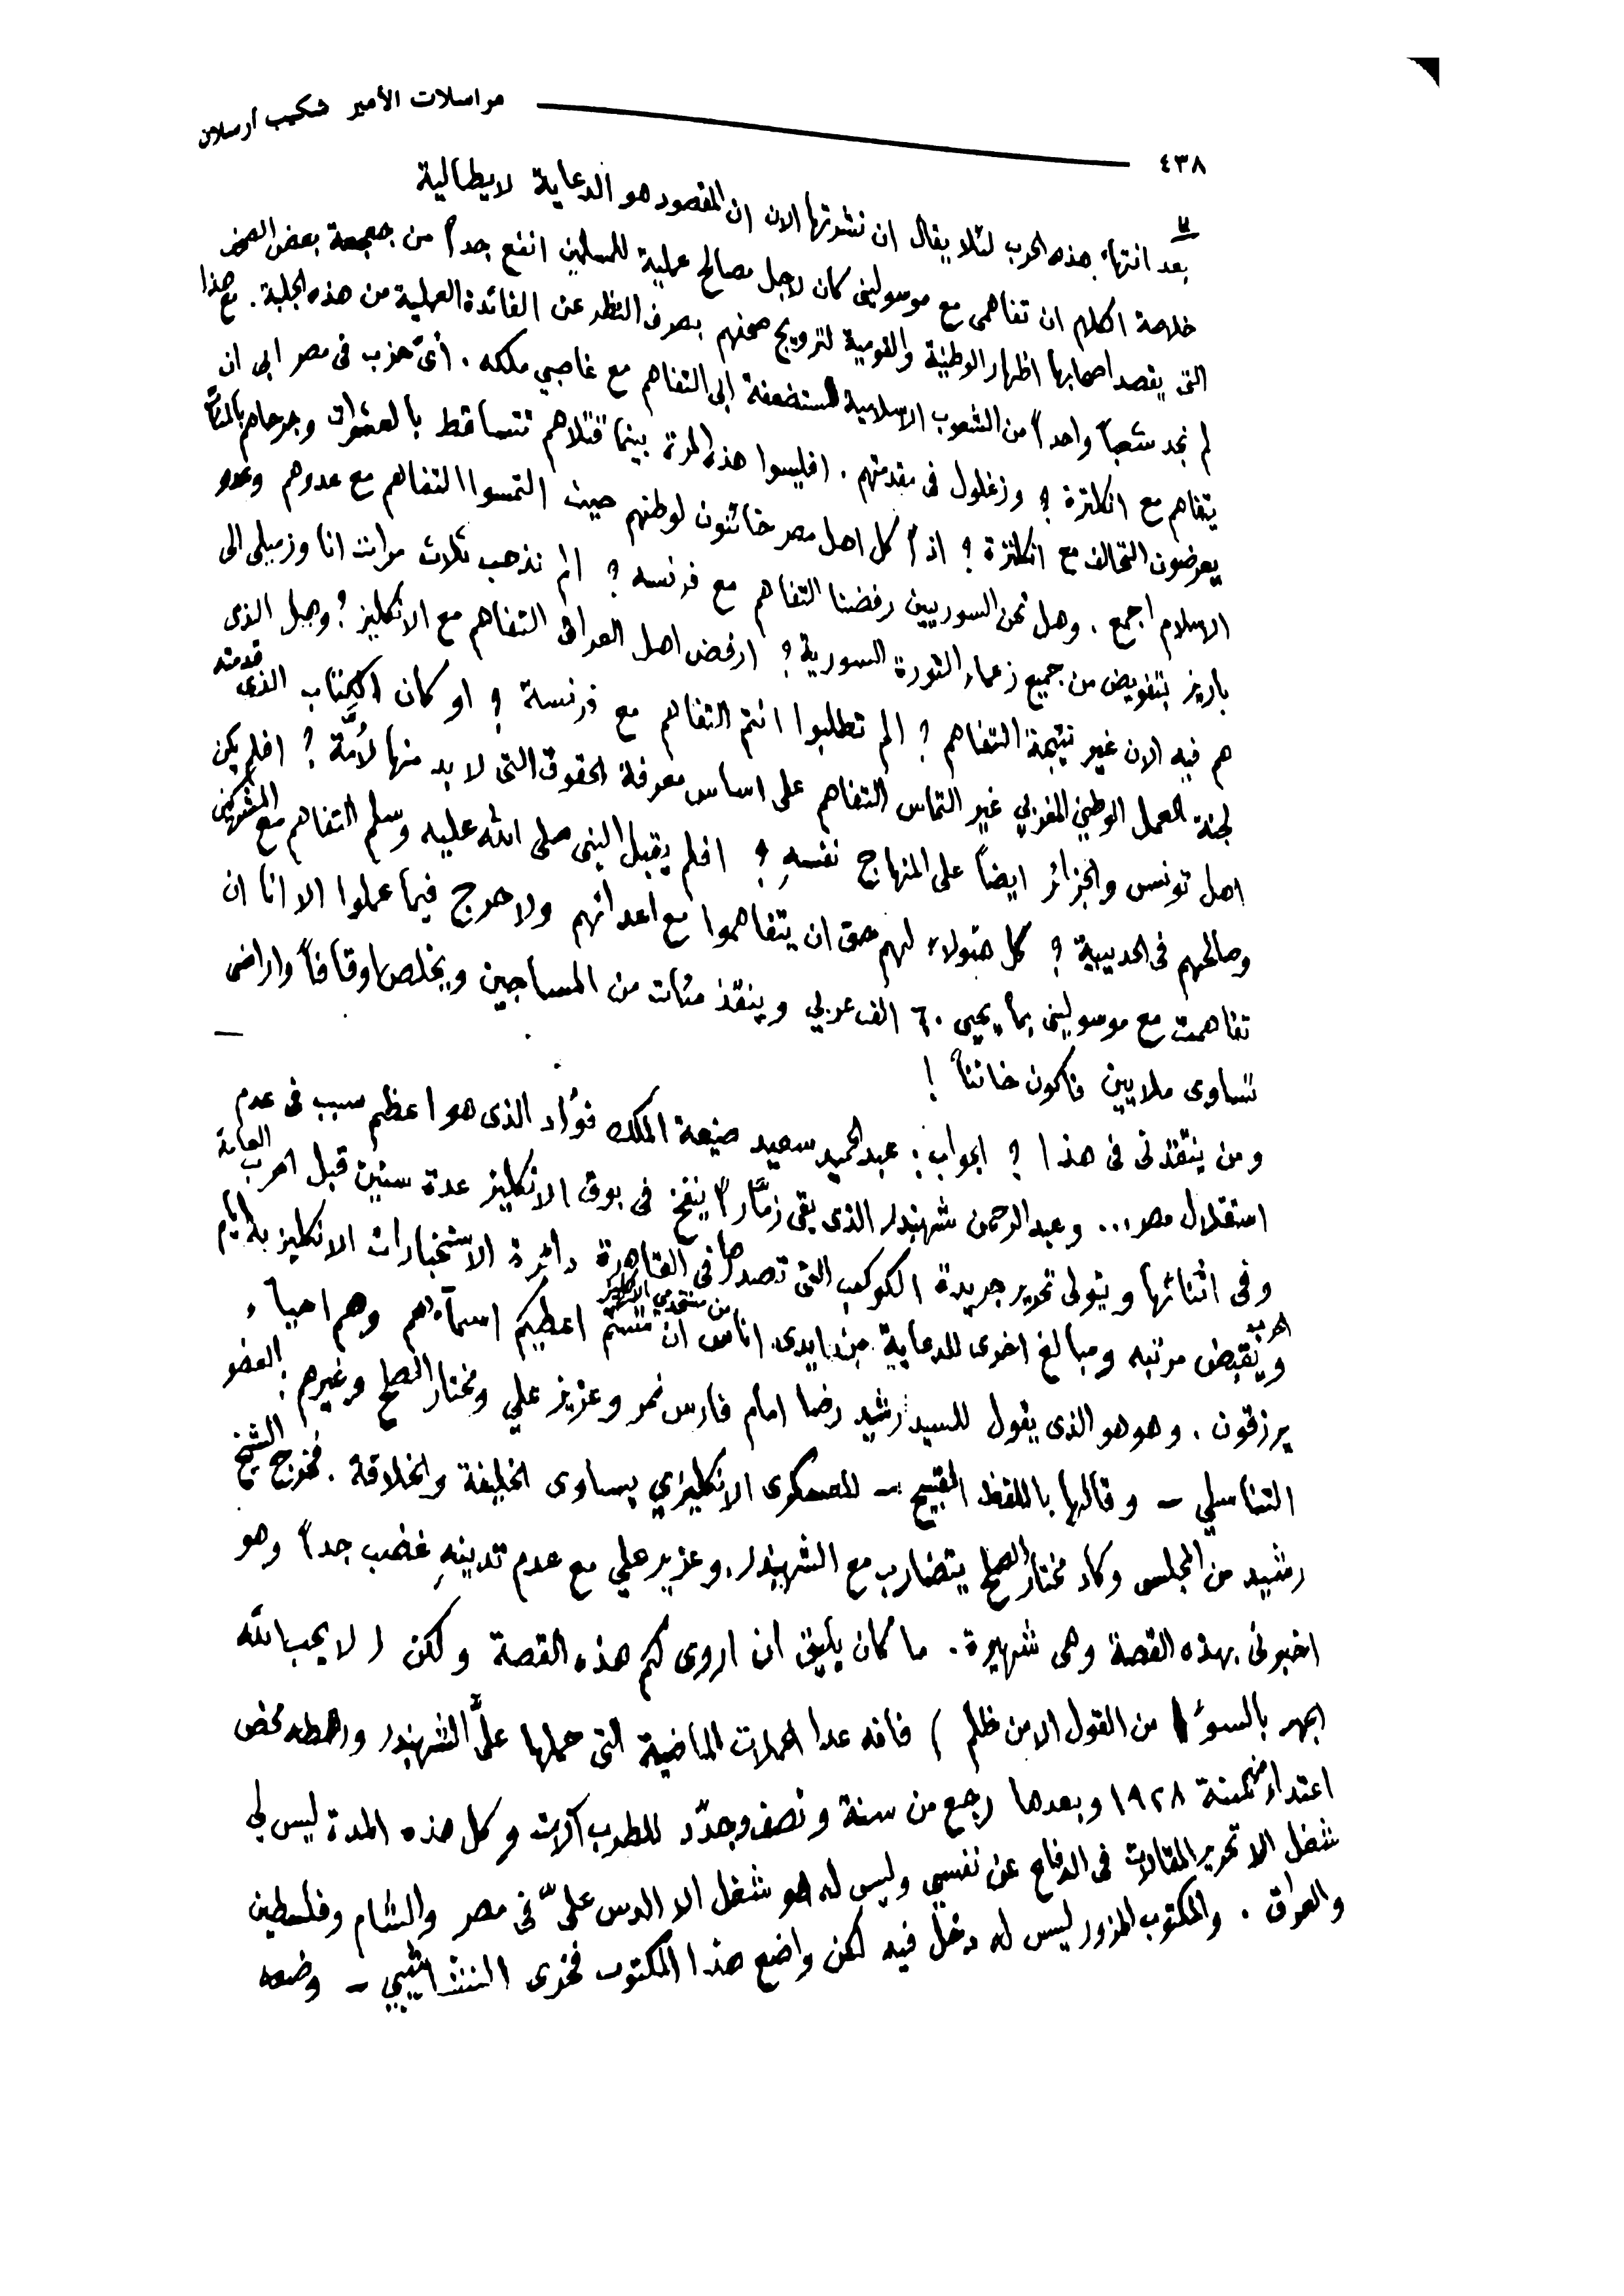 مراسلات الأمير شكيب أرسلان
٤٣٨
بعد انتهاء هذه الحرب لئلا يقال ان نشرتها الان ان المقصود هو الدعاية لايطالية
خلاصة الكلام ان تفاهمى مع موسولينى كان لاجل مصالح عملية للمسلمين انفع جداً من جعجعة بعض الصحف
التى يقصد اصحابها اظهار الوطنية والقومية لترويج صحفهم بصرف النظر عن الفائدة العملية من هذه الجلبة . مع هذا
لم نجد شعباً واحداً من الشعوب الاسلامية المستضعفة ابى التفاهم مع غاصبي ملكه . أىّ حزب فى مصر ابى ان
يتفاهم مع انكلترة ؟ وزغلول فى مقدمتهم . افليسوا هذه المرة بينما قتلاهم تتساقط بالعشرات وجرحاهم بالمئات
يعرضون التحالف مع انكلترة ؟ اذاً كل اهل مصر خائنون لوطنهم حيث التمسوا التفاهم مع عدوهم وعدو
الاسلام اجمع . وهل نحن السوريين رفضنا التفاهم مع فرنسه ؟ الم نذهب ثلاث مرات انا وزميلى الى
باريز بتفويض من جميع زعماء الثورة السورية ؟ ارفض اهل العراق التفاهم مع الانكليز ؟ وهل الذى
هم فيه الان غير نتيجة التفاهم ؟ الم تطلبوا انتم التفاهم مع فرنسة ؟ او كان الكتاب الذى قدمته
لجنة العمل الوطني المغربي غير التماس التفاهم على اساس معرفة الحقوق التى لا بد منها لأمّة ؟ افلم يكن
اهل تونس والجزائر ايضاً على المنهاج نفسهِ ؟ افلم يقبل النبى صلى الله عليه وسلم التفاهم مع المشركين
وصالحهم فى الحديبية ؟ كل هؤلاء لهم حق ان يتفاهموا مع اعدائهم ولا حرج فيما عملوا الا انا ان
تفاهمت مع موسولينى بما يحيى ٦٠ الف عربي وينقذ مئات من المساجين ويخلص اوقافاً واراضى
تساوى ملايين فاكون خائناً !
ومن ينتقدنى فى هذا ؟ الجواب : عبد الحميد سعيد صنيعة الملك فؤاد الذى هو اعظم سبب فى عدم
استقلال مصر... وعبد الرحمن شهبندر الذى بقى زمّاراً ينفخ فى بوق الانكليز عدة سنين قبل الحرب العامة
وفى اثنائها ويتولى تحرير جريدة الكوكب التى تصدرها فى القاهرة دائرة الاستخبارات الانكليزية ايام الحرب
ويقبض مرتبه ومبالغ اخرى للدعاية من ايدى اناس ان شئتم اعطيكم اسمآءهم وهم احياء
يرزقون . وهو هو الذى يقول للسيد رشيد رضا امام فارس نمر وعزيز علي ومختار الصلح وغيرهم : العضو
التناسلي – وقالها باللفظ القبيح – للعسكرى الانكليزي يساوى الخليفة والخلافة . فخرج الشيخ
رشيد من المجلس وكاد مختار الصلح يتضارب مع الشهبندر وعزيز علي مع عدم تدينهِ غضب جداً وهو
اخبرنى بهذه القصة وهى شهيرة . ما كان يليق ان اروى لكم هذه القصة ولكن ( لا يحب الله
الجهر بالسوء من القول الا من ظلم ) فانه عدا الحملات الماضية التى حملها علىّ الشهبندر ورهطه محض
اعتداء منهم سنة ١٩٢٨ وبعدها رجع من سنة ونصف وجدّد للطرب آلات وكل هذه المدة ليس لي
شغل الا تحرير المقالات فى الدفاع عن نفسي وليس له هو شغل الا الدس علىّ فى مصر والشام وفلسطين
والعراق . والمكتوب المزور ليس له دخل فيه لكن واضع هذا المكتوب فخرى النشاشيبي – وضعه